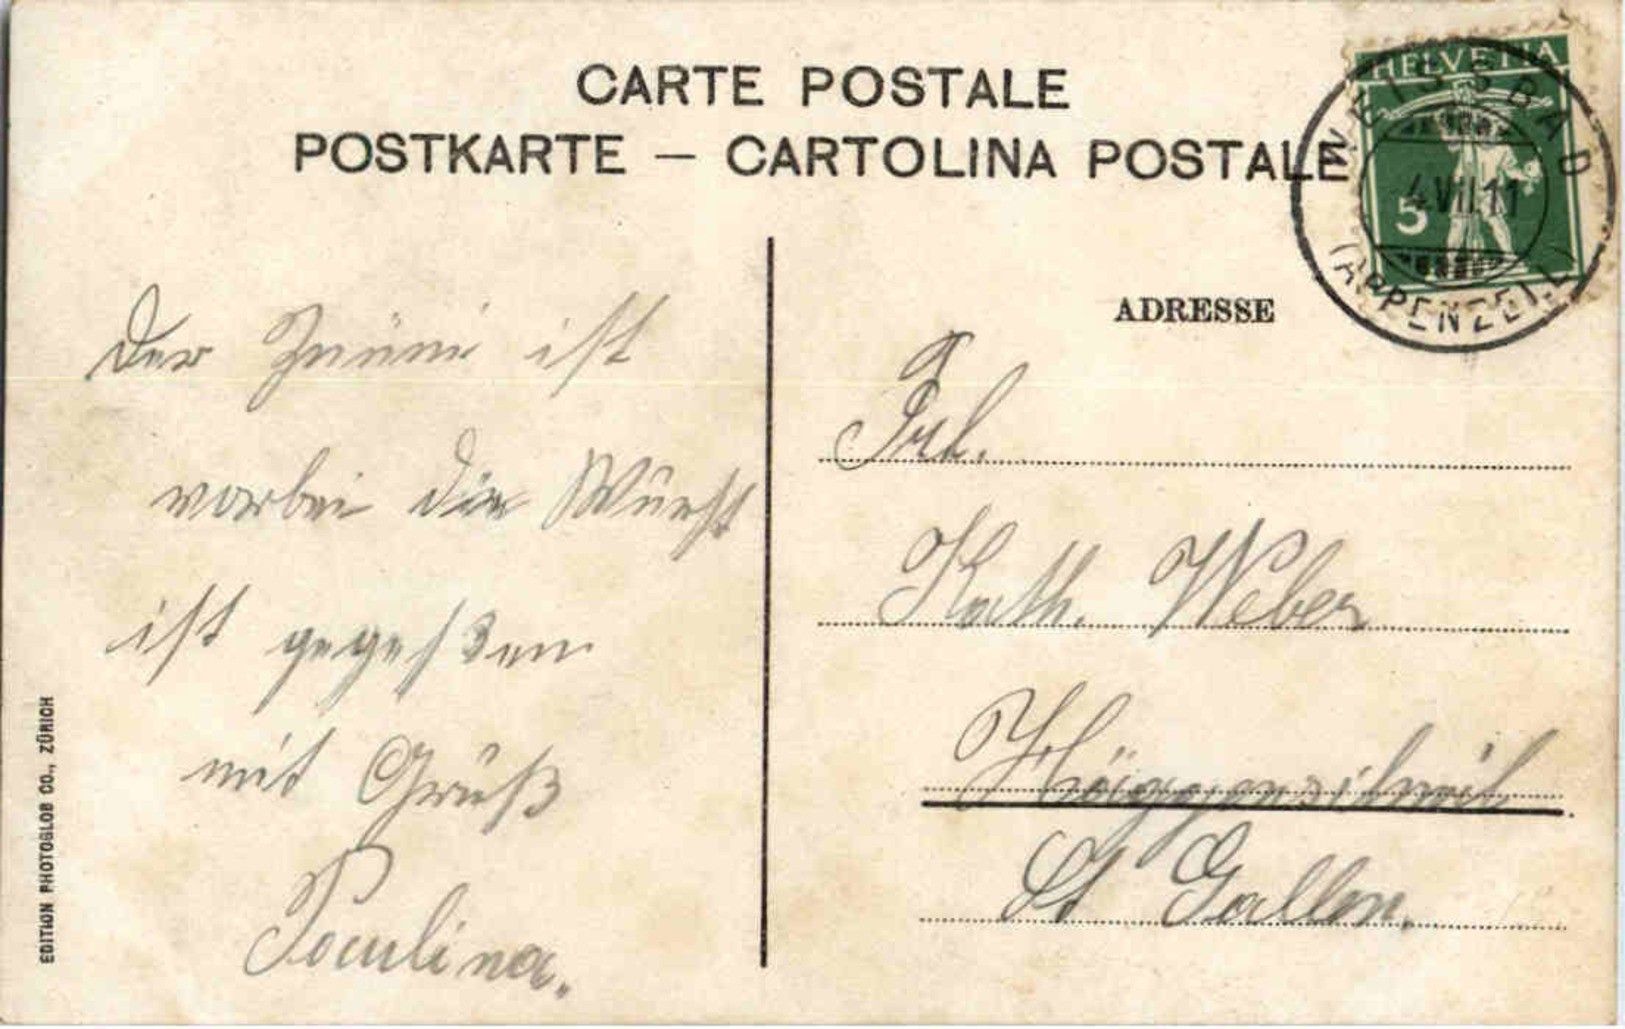 CARTE POSTALE
POSTKARTE — CARTOLINA POSTALE
HELVETIA
5
WEISSBAD
4.VII.11
(APPENZELL)
Der Znüni ist
vorbei die Würst
ist gegeßen
mit Grüß
Paulina.
ADRESSE
Frl.
Kath. Weber
Häggenschwil
St Gallen.
EDITION PHOTOGLOB CO., ZÜRICH